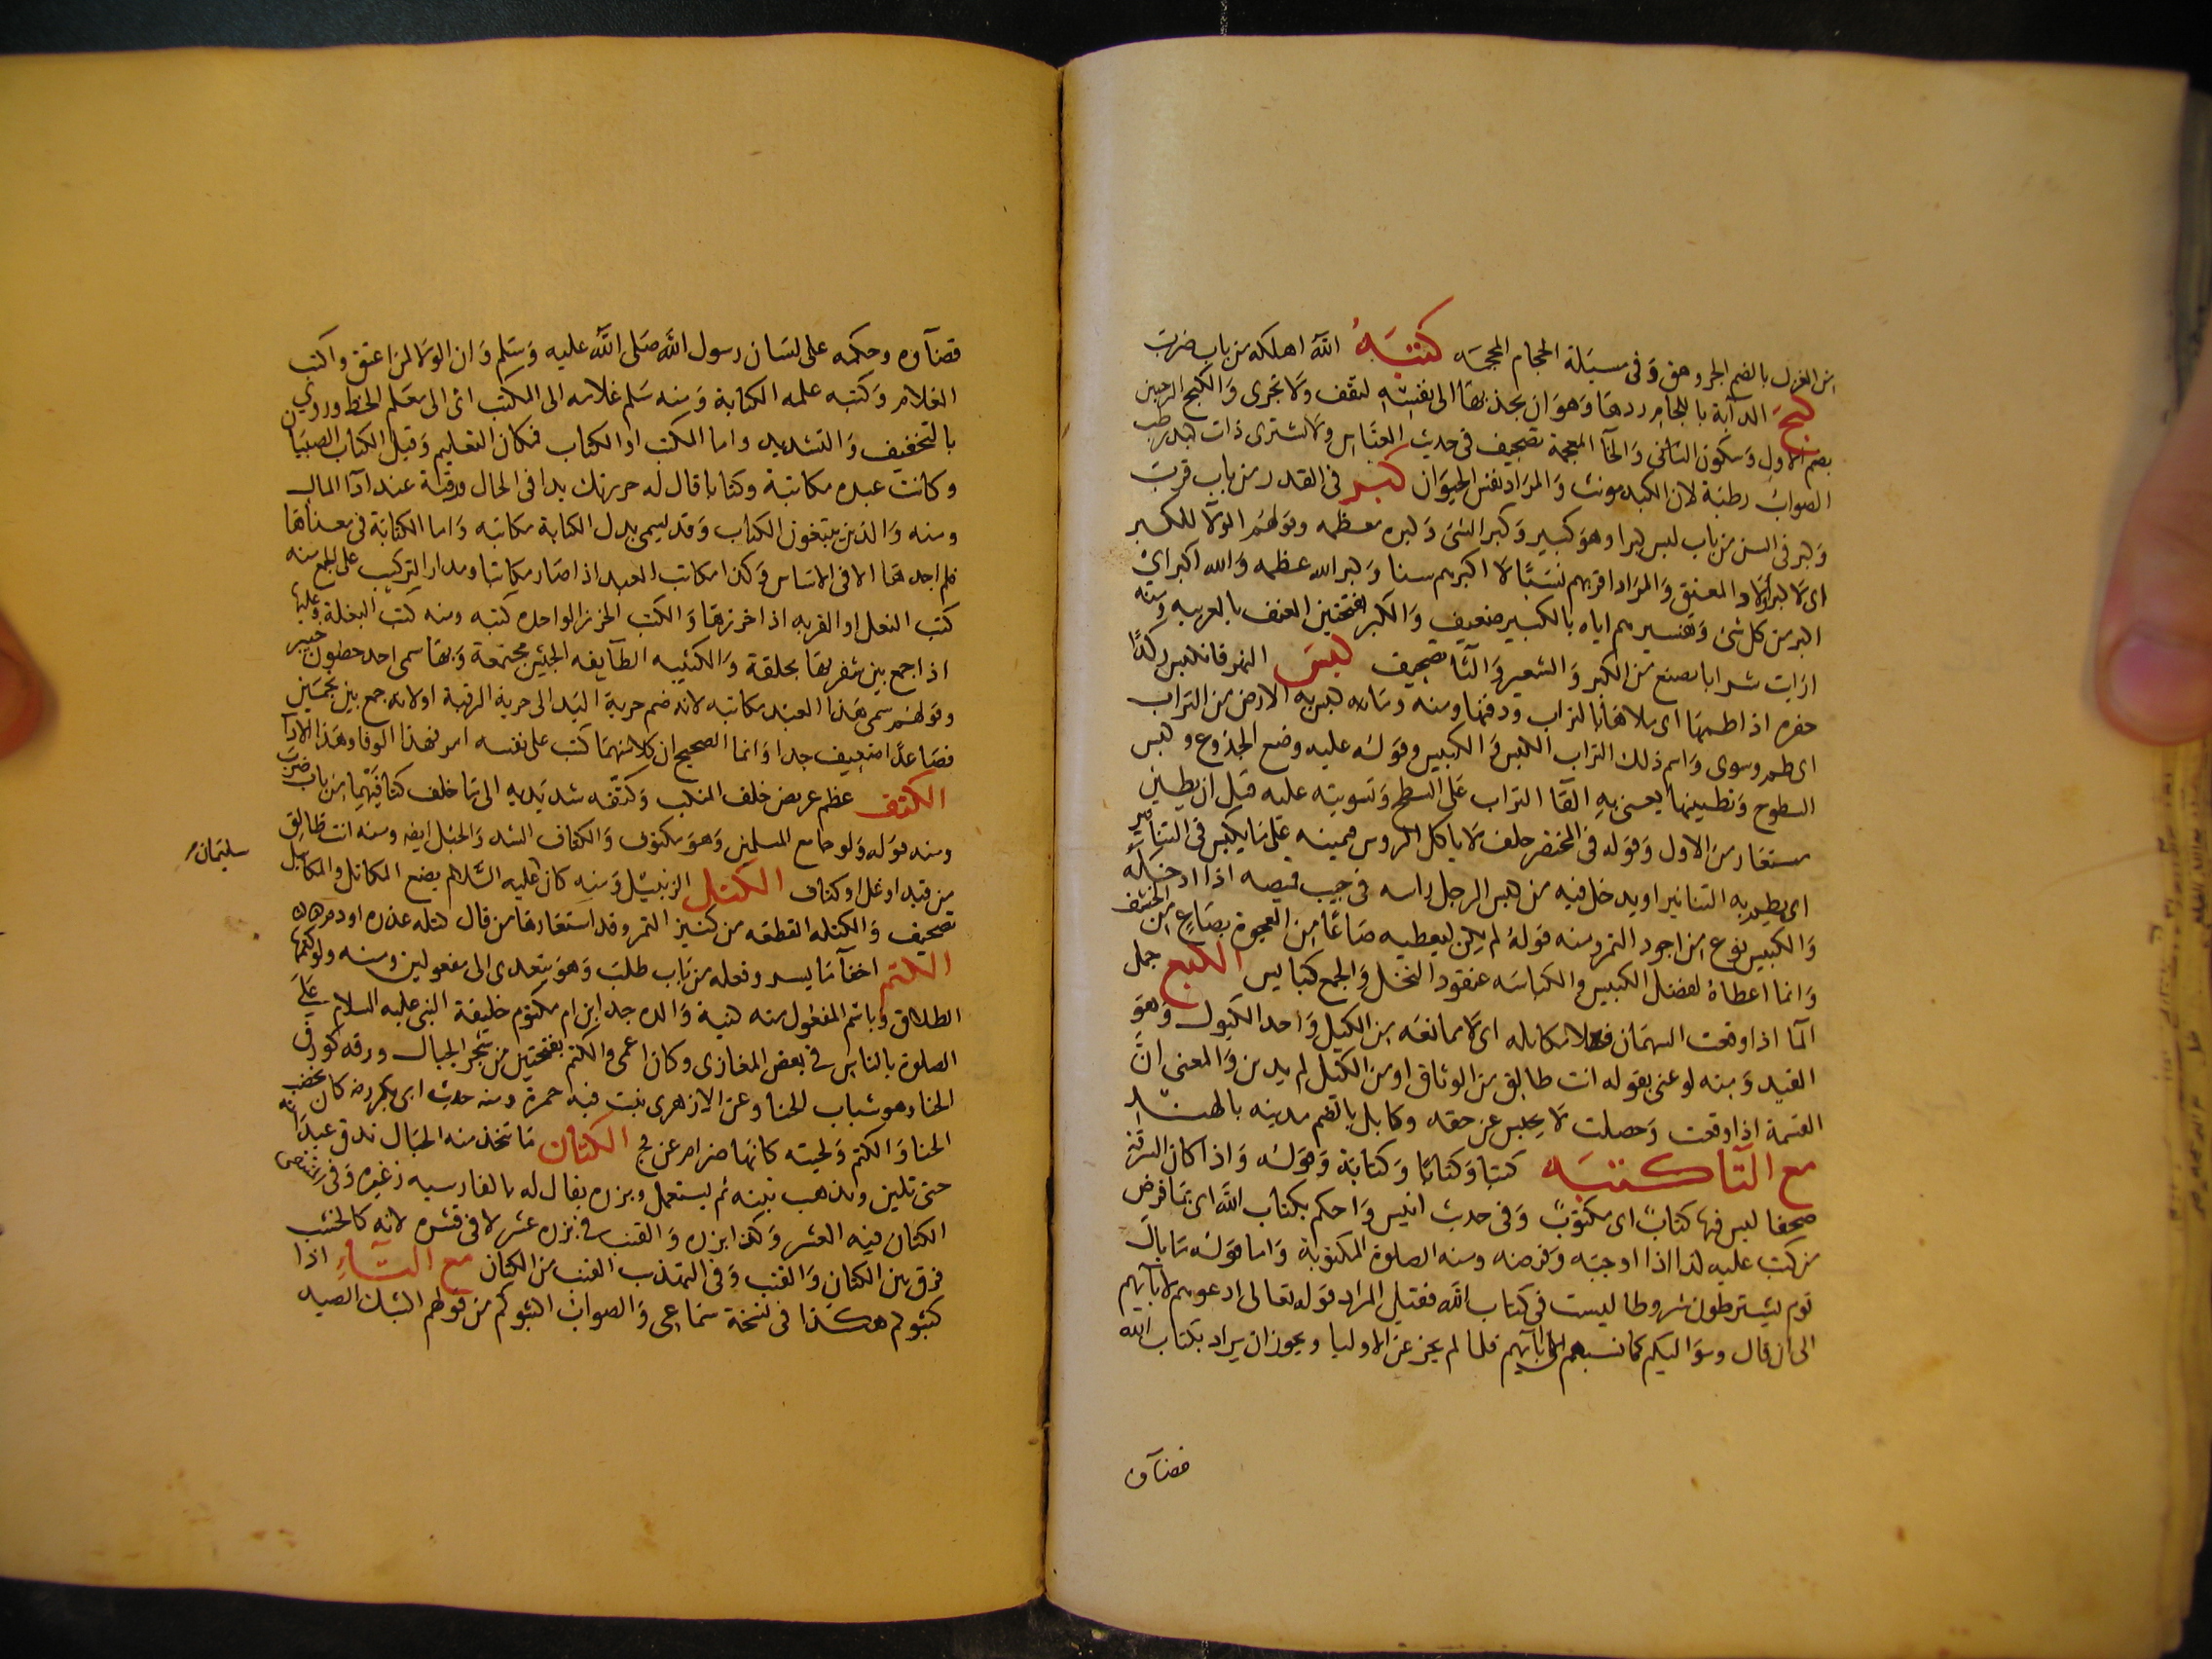 من الغزل بالضم الجروهق وَفى مسيَلة الحجام المحجمَه كبتَهُ اللّٰه اهلكه من باب ضربَ
كبحَ الدآبة باللجامِ ردهَا وَهوَ ان يجذبهَا الى نفسِهِ لتقف وَلا تجرى وَالكبح الرخبين
بضم الاول وَسكون الثانى وَالخآ المعجمة تصحيف فى حديث العبَّاس ولا تشترى ذات كبد رطب
الصوابُ رطبَة لان الكبد مونث وَالمرَاد نفس الحيوَان كبر فى القدر من باب قربَ
وَكبر فى السن من باب لبس كبرا وهوَ كبير وَكبر الشئ وَكبره معظمه وقولهُم الولآ للكبر
اى لا كبر اولاد المعتق وَالمرَاد اقربهم نسَبًا لا اكبرهم سنا وَكبر الله عظمه وَالله اكبر اىْ
اكبر من كل شئ وَتفسيرهم اياه بالكبير ضعيف وَالكبر بفتحتين اللصف بالعربيه ومنه
ارَايت شرابا يصنع من الكبر وَالشعير وَالثآ تصحيف كبسَ النهر فانكبس وكذَا
حفره اذا طمهَا اى ملاهَا بالتراب ودفنها ومنه وسَاده كبس به الارض من التراب
اى طمر وسوى وَاسم ذلك التراب الكبس وَالكبيس وقوَله عليه وضع الجذوع وكبس
السطوح وَتطيينها يعنى به القآ التراب عَلى السطح وَتسويته عليه قبل ان يطين
مستعَار من الاول وَقوله فى المختصر حلف لا ياكل الروس فيمينه على مَا يكبس فى التنانير
اى يطير به التنانير او يدخل فيه من كبس الرجل راسه فى جيب قميصه اذا ادخله
وَالكبيس نوع من اجود التمر ومنه قولهُ لم يكن ليعطيه صَاعًا من العجوة بصَاعٍ من الحشف
وَانما اعطاهُ لفضل الكبيس والكباسَه عنقود النخل وَالجمع كبايس الكبع جمل
المآ اذا وقعت السهمَان فلا مكابله اى لا ممانعَه من الكبل وَاحد الكبول وَهوَ
القيد وَمنه لو عنى بقوله انت طالق من الوثاق او من الكبل لم يدين وَالمعنى انَّ
القسمة اذا وقعت وَحصلت لا يحبس عن حقه وكابل بالضم مدينه بالهند
مع التآ كتبَه كتبا وَكتابًا وَكتابة وَقوله وَاذا كان السرقة
صحفا ليس فيها كتابُ اى مكتوبٌ وَفى حديث انيس وَاحكم بكتاب اللّٰه اى بمَا فرض
من كتب عليه كذا اذا اوجبَه وَفرضه ومنه الصلوة المكتوبة وَاما قوله مَا بال
قوم يشترطون شروطا ليست فى كتاب اللّٰه فقيل المراد قوله تعالى ادعوهم لآبآيهم
الى ان قال وموَاليكم كما نسبهم الى ابآيهم فلما لم يجز عن الاوليا ويجوز ان يراد بكتاب الله
قضآؤه
قضآؤه وحكمه على لسَان رسول اللّٰه صَلى اللّٰه عليه وَسَلم وَان الولا لمن اعتق واكتب
الغلام وَكتبه علمه الكتابة وَمنه سَلم غلامه الى المكتب اى الى معَلم الخط وروي
بالتخفيف وَالتشديد واما المكتب او الكتاب فمكان التعليم وَقيل الكتاب الصبيان
وكاتب عبده مكاتبة وكتابا قال له حررتك يدا فى الحال ورقبة عند ادآ المال
ومنه وَالذين يبتغون الكتاب وَقد ليسمى بدل الكتابة مكاتبه وَاما الكتابَة فى معناهَا
فلم اجدهَا الا فى الاسَاس وَكذا مكاتب العبد اذا صَار مكاتبا ومدار التركيب على الجمع منه
كتب النعل او القربه اذا خرزهَا وَالكتب الخرز الواحده كتبه ومنه كتب البغلة وعليها
اذا جمع بين شفريها بحلقة وَالكتيبه الطآيفه الجيش مجتمعة وَبهَا سمى احد حصون خيبر
وقولهُم سمى هَذا العبد مكاتبه لانه ضم حرية اليَد الى حرية الرقبة اولانه جمع بين نجمَين
فصَاعدًا ضعيف جدا وَانما الصحيح ان كلا منهمَا كتب على نفسه امر هذا الوفا وهَذا الادآ
الكتف عظم عريض خلف المنكب وَكتفَه شد يَديه الى مَا خلف كتافيَهْمِا مِن باب ضرب
ومنه قوله وَلو جا مع المسلمين وَهوَ مكتوف وَالكتاف الشد وَالحبل ايضه ومنه انت طَالِق
من قيد او غل او كتاف الكتل الزنبيل وَمنه كان عليه السَّلام يصنع المكاتل والمكابل
سليمَان
تصحيف وَالكتله القطعَه من كنيز التمر وقد استعَارهَا من قال كتله عذره او دم
الكتم اخفآ مَا يسر وفعله من بَاب طلبَ وَهوَ يتعدى الى مفعولين ومنه ولو كتمهَا
الطلاق وَباسْم المفعُول منه كنية وَالده جد ابن ام مكتوم خليفة النبى عليه السلام عَلَى
الصلوة بالناس فى بعض المغازى وكان اعمى والكتم بفتحتين من شجر الجبال ورقه كورق
الحناء وهو شباب للحنا وعن الازهرى نبت فيه حمرة ومنه حديث ابى بكر رضه كان يخضب
الحنا وَالكتم وَلحيته كانهَا ضرام عرفج الكتان مَا يتخذ منه الحبَال تدق عيدَانه
حتى تلين ويذهب تبنه ثم يستعمل وبزره يقال له بالفارسيه زغير وَفى
الكتان فيه العشر وَكذا بزره وَالقنب فى بزره عشر لا فى قشره لانه كالخشب
فرق بين الكتان وَالقنب وَفى التهذب القنب من الكتان مع الثَآءِ اذا
كثبوكم هكَذا فى نسخة سَماعى وَالصوابُ اكثبوكم من قولهم اكثبك الصيد